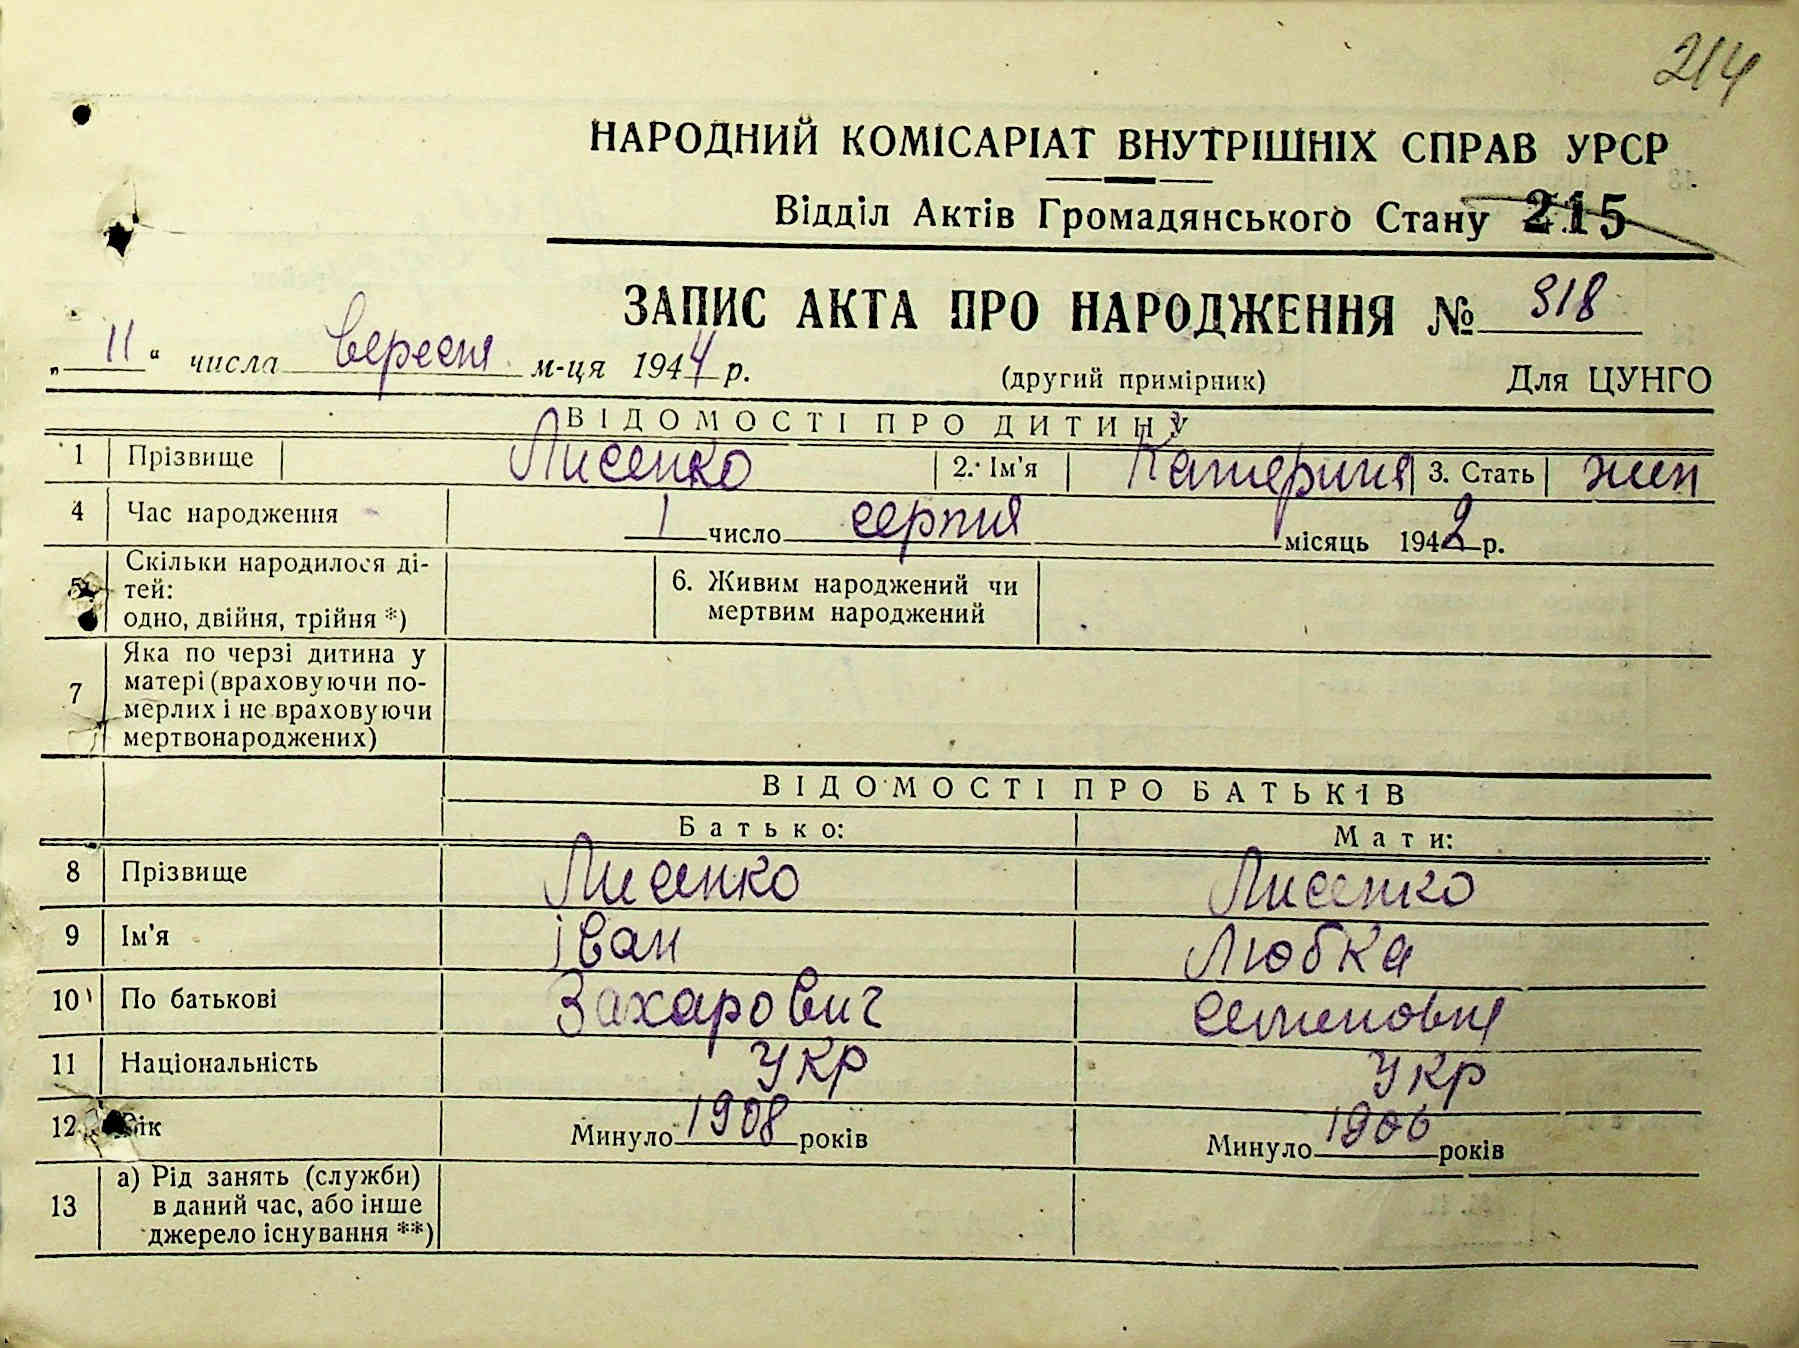 214
НАРОДНИЙ КОМІСАРІАТ ВНУТРІШНІХ СПРАВ УРСР
Відділ Актів Громадянського Стану 215
ЗАПИС АКТА ПРО НАРОДЖЕННЯ № 318
„11“ числа вересня м-ця 1944 р. (другий примірник) Для ЦУНГО
ВІДОМОСТІ ПРО ДИТИНУ
1 Прізвище Лисенко 2. Ім'я Катерина 3. Стать жен
4 Час народження 1 число серпня місяць 1942 р.
5 Скільки народилося ді-
тей:
одно, двійня, трійня *)
6. Живим народжений чи
мертвим народжений
7 Яка по черзі дитина у
матері (враховуючи по-
мерлих і не враховуючи
мертвонароджених)
ВІДОМОСТІ ПРО БАТЬКІВ
Батько: Мати:
8 Прізвище Лисенко Лисенко
9 Ім'я Іван Любка
10 По батькові Захарович Семеновна
11 Національність Укр Укр
12 Вік Минуло 1908 років Минуло 1906 років
13 а) Рід занять (служби)
в даний час, або інше
джерело існування **)